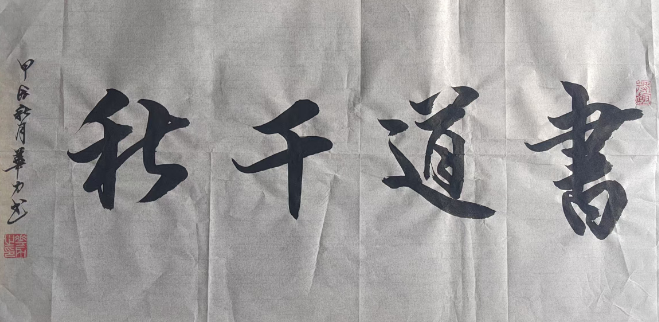 書道千秋
甲辰秋月華力书